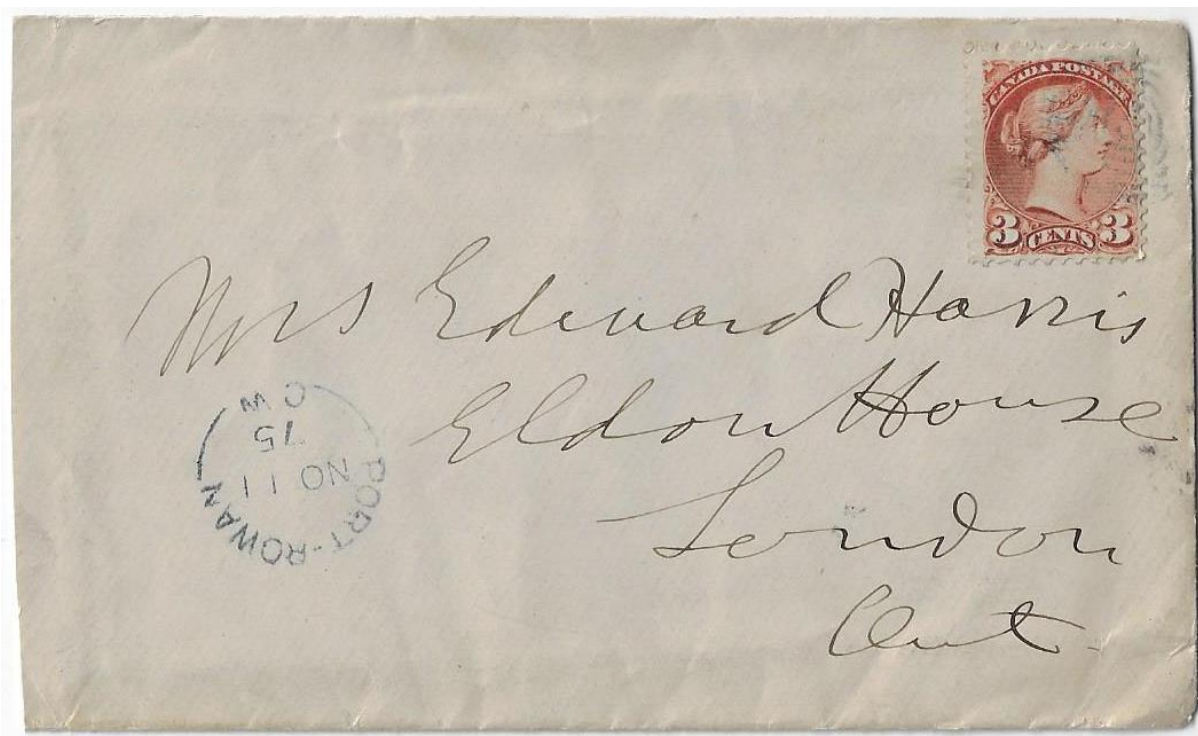 CANADA POSTAGE
3 CENTS 3
Mrs Edward Harris
Eldon House
London
Ont
PORT-ROWAN
NO 11
75
C W